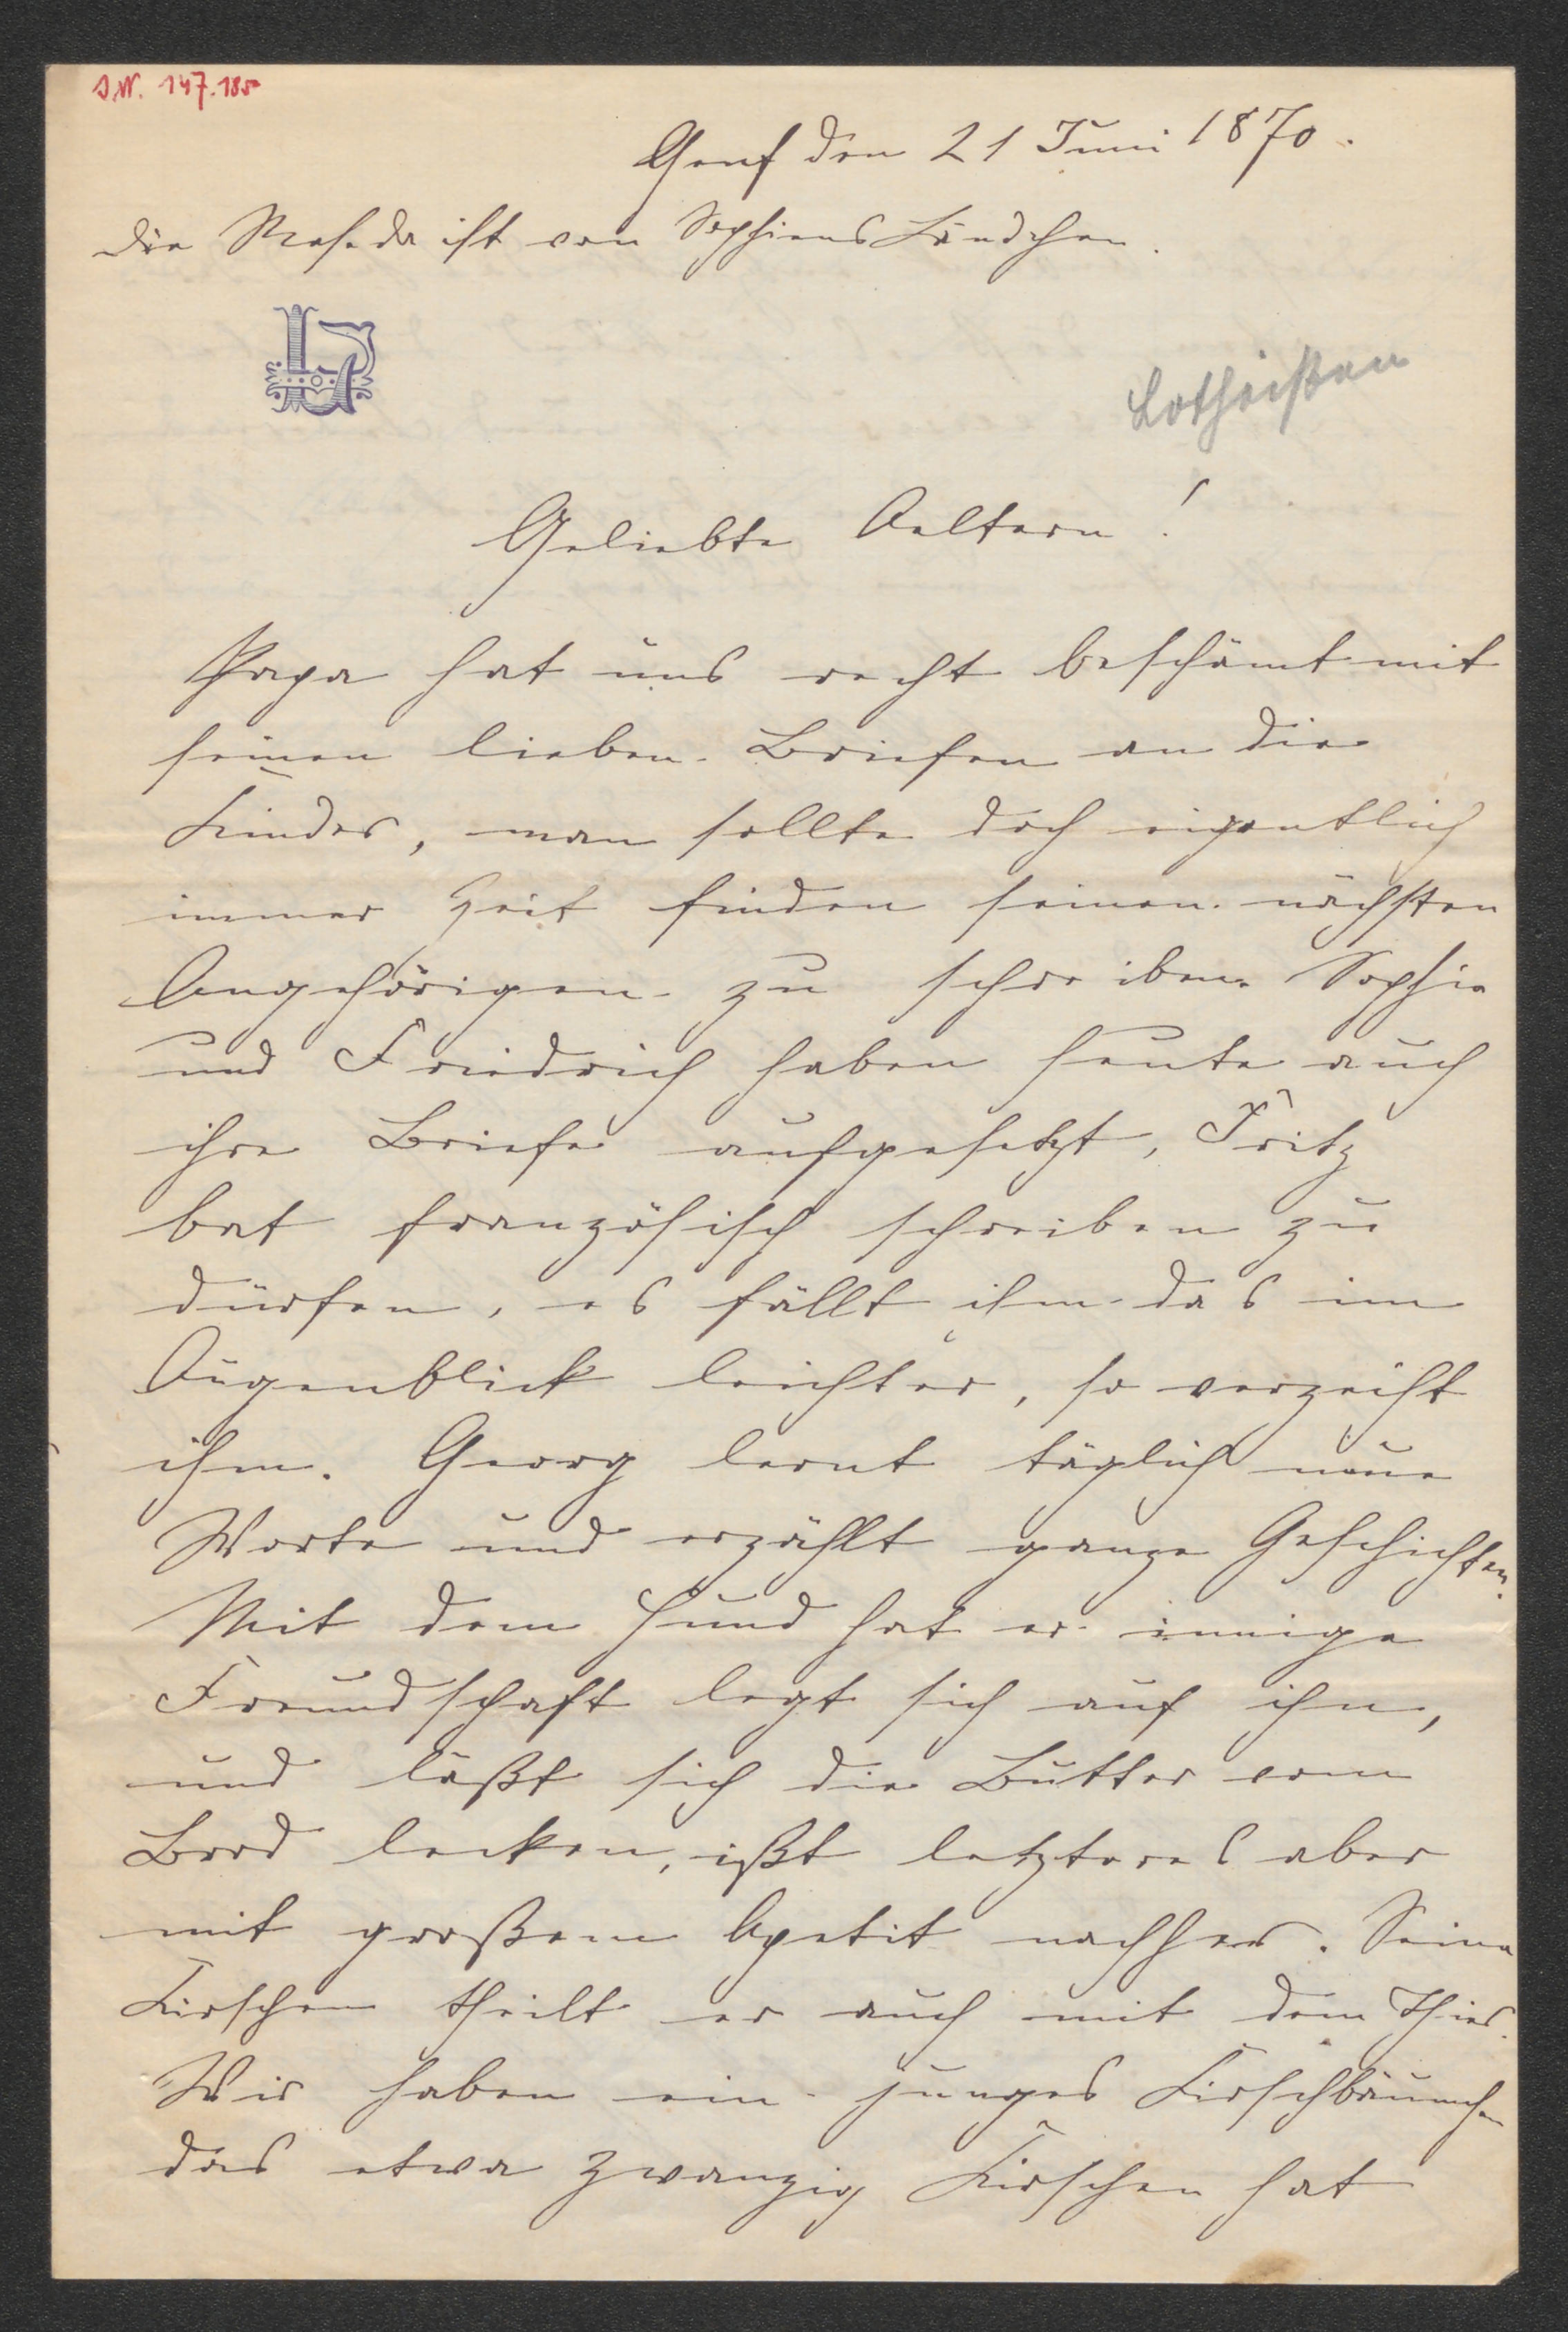 I.N. 147.185
Genf den 21 Juni 1870.
Die Reseda ist von Sophiens Ländchen.
Lotheißen
Geliebte Aeltern!
Papa hat uns recht beschämt mit
seinen lieben Briefen an die
Kinder, man sollte doch eigentlich
immer Zeit finden seinen nächsten
Angehörigen zu schreiben. Sophie
und Friedrich haben heute auch
ihre Briefe aufgesetzt, Fritz
bat französisch schreiben zu
dürfen, es fällt ihm das im
Augenblick leichter, so verzeiht
ihm. Georg lernt täglich neue
Worte und erzählt ganze Geschichten.
Mit dem Hund hat er innige
Freundschaft legt sich auf ihn,
und läßt sich die Butter vom
Brod lecken, ißt letzteres aber
mit großem Apetit nachher. Seine
Kirschen theilt er auch mit dem Thier.
Wir haben ein junges Kirschbäumchen
das etwa zwanzig Kirschen hat